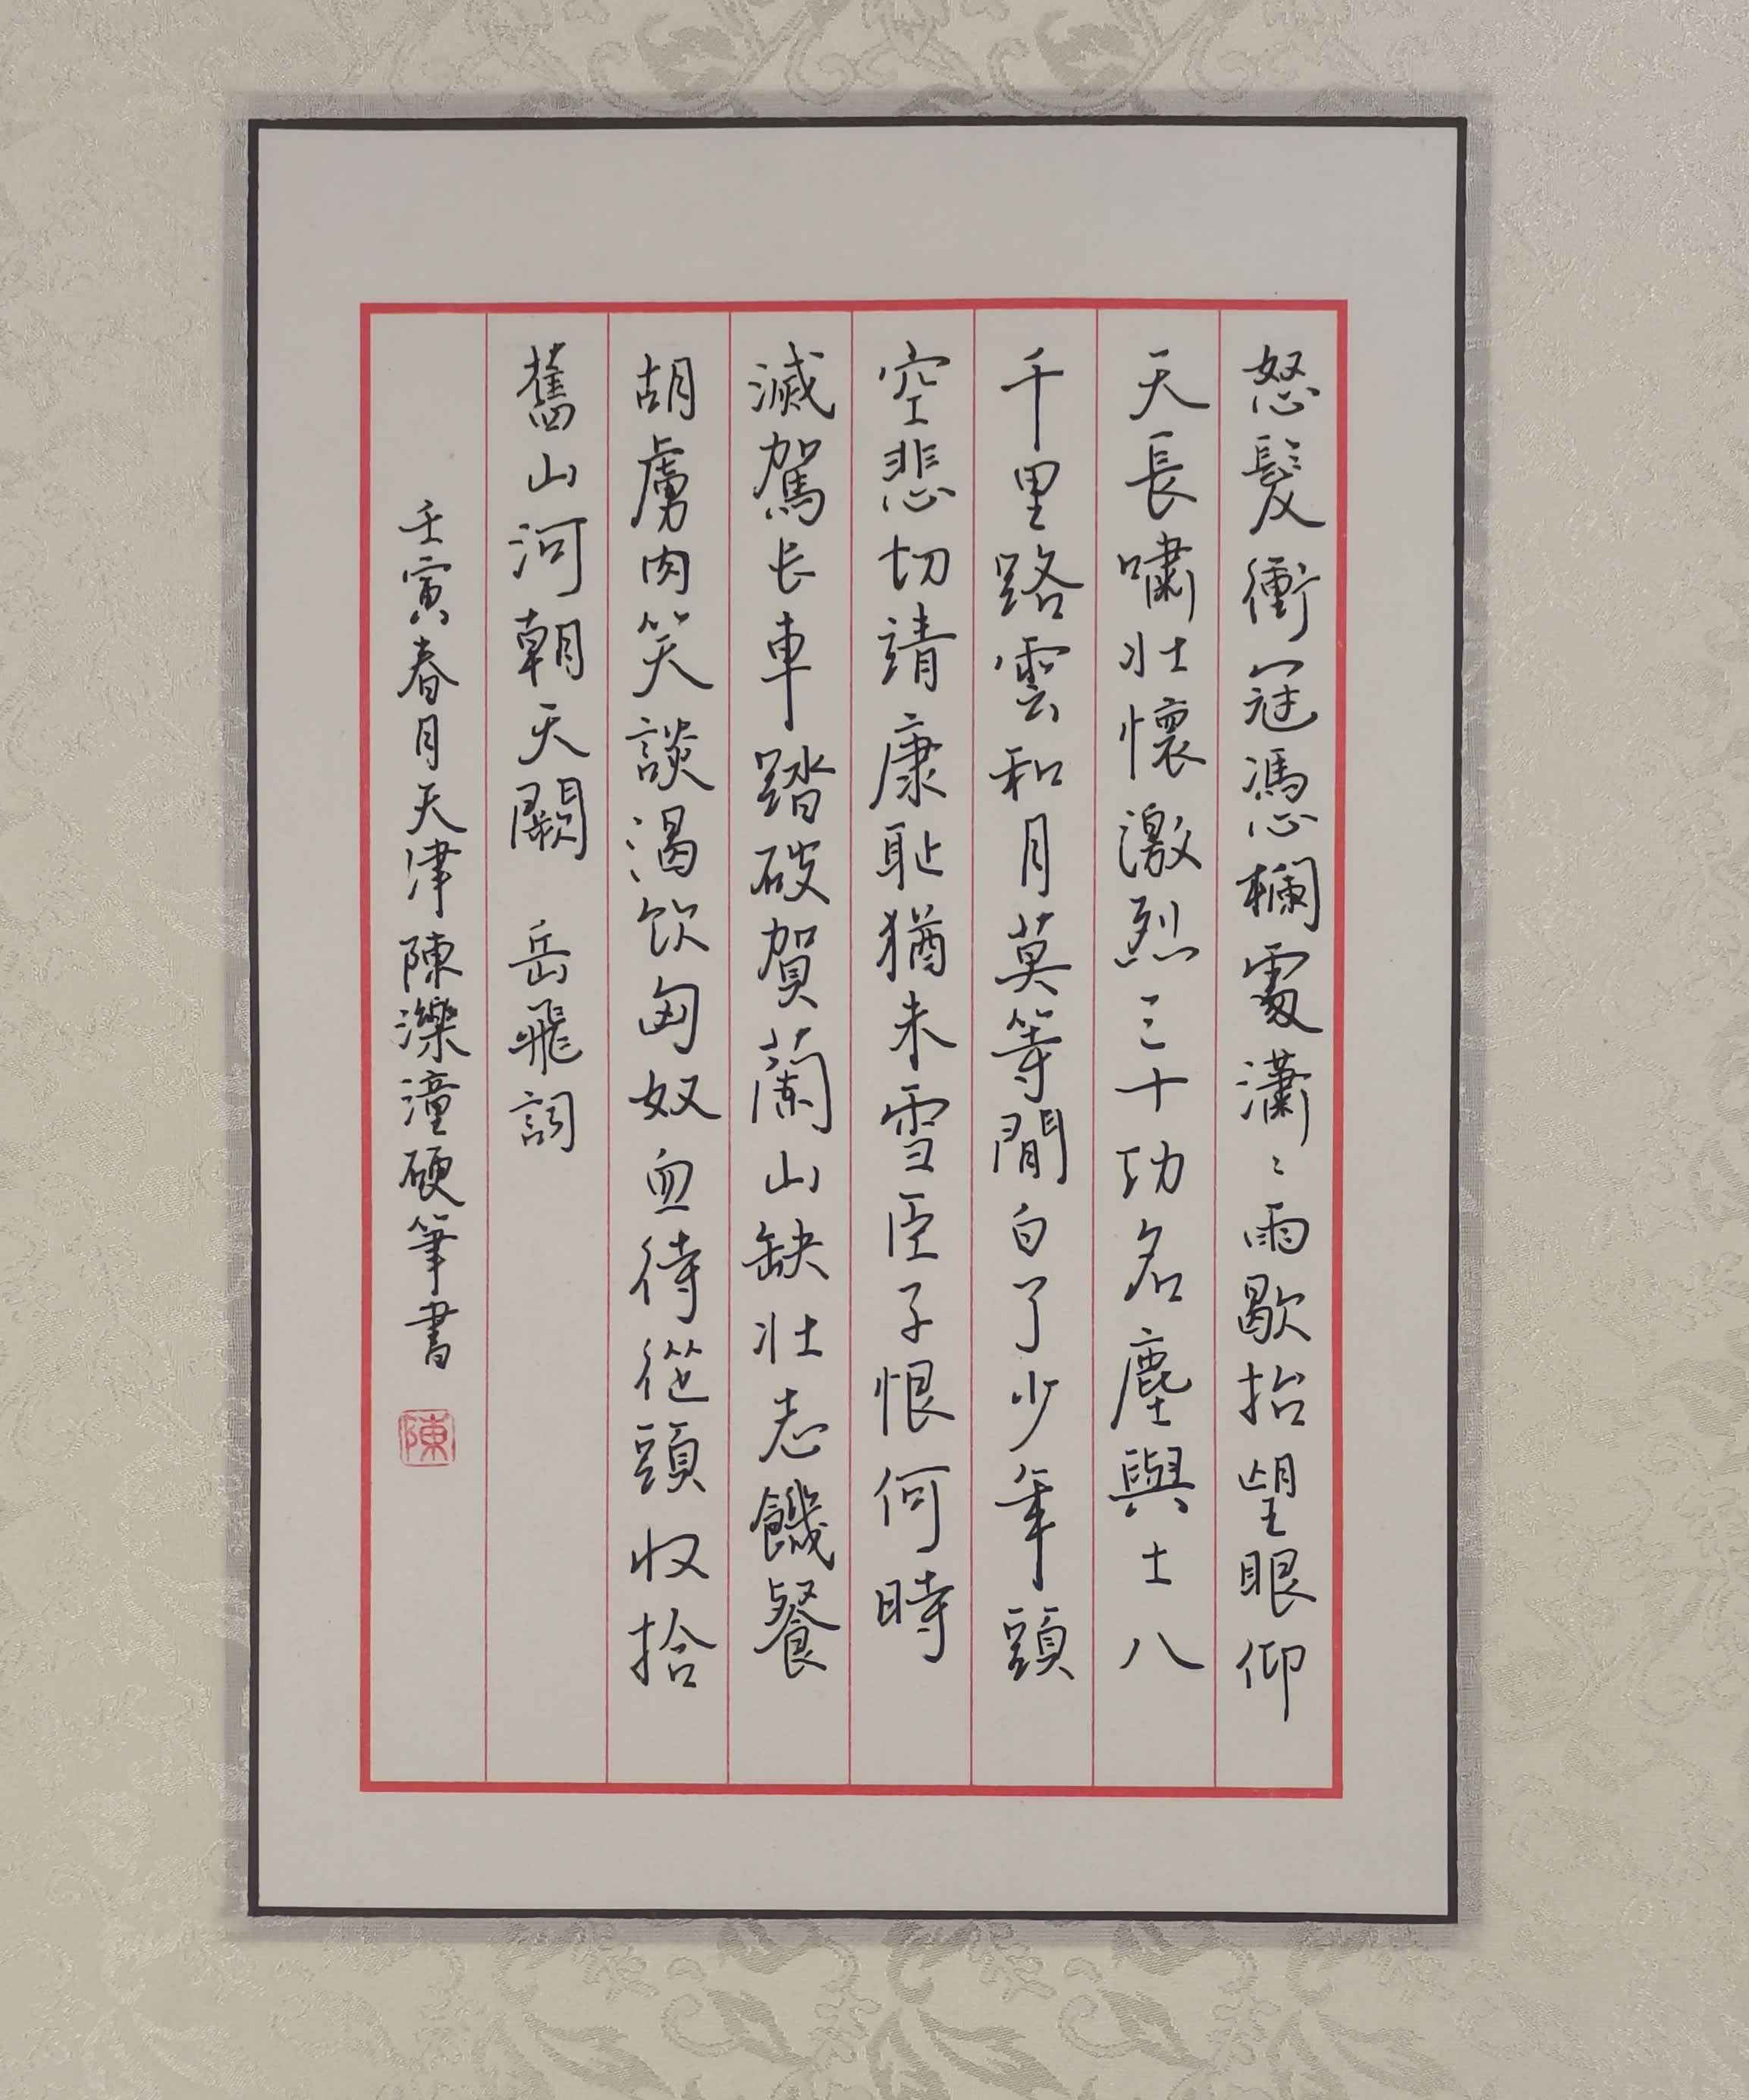 怒髮衝冠馮心欄處瀟〻雨歇抬望眼仰
天長嘯壯懷激烈三十功名塵與土八
千里路雲和月莫等閒白了少年頭
空悲切靖康恥猶未雪臣子恨何時
滅駕长車踏破賀蘭山缺壯志饑餐
胡虜肉笑談渴飲匈奴血待從頭收拾
舊山河朝天闕 岳飛詞
壬寅春月天津陳濼潼硬筆書
陳